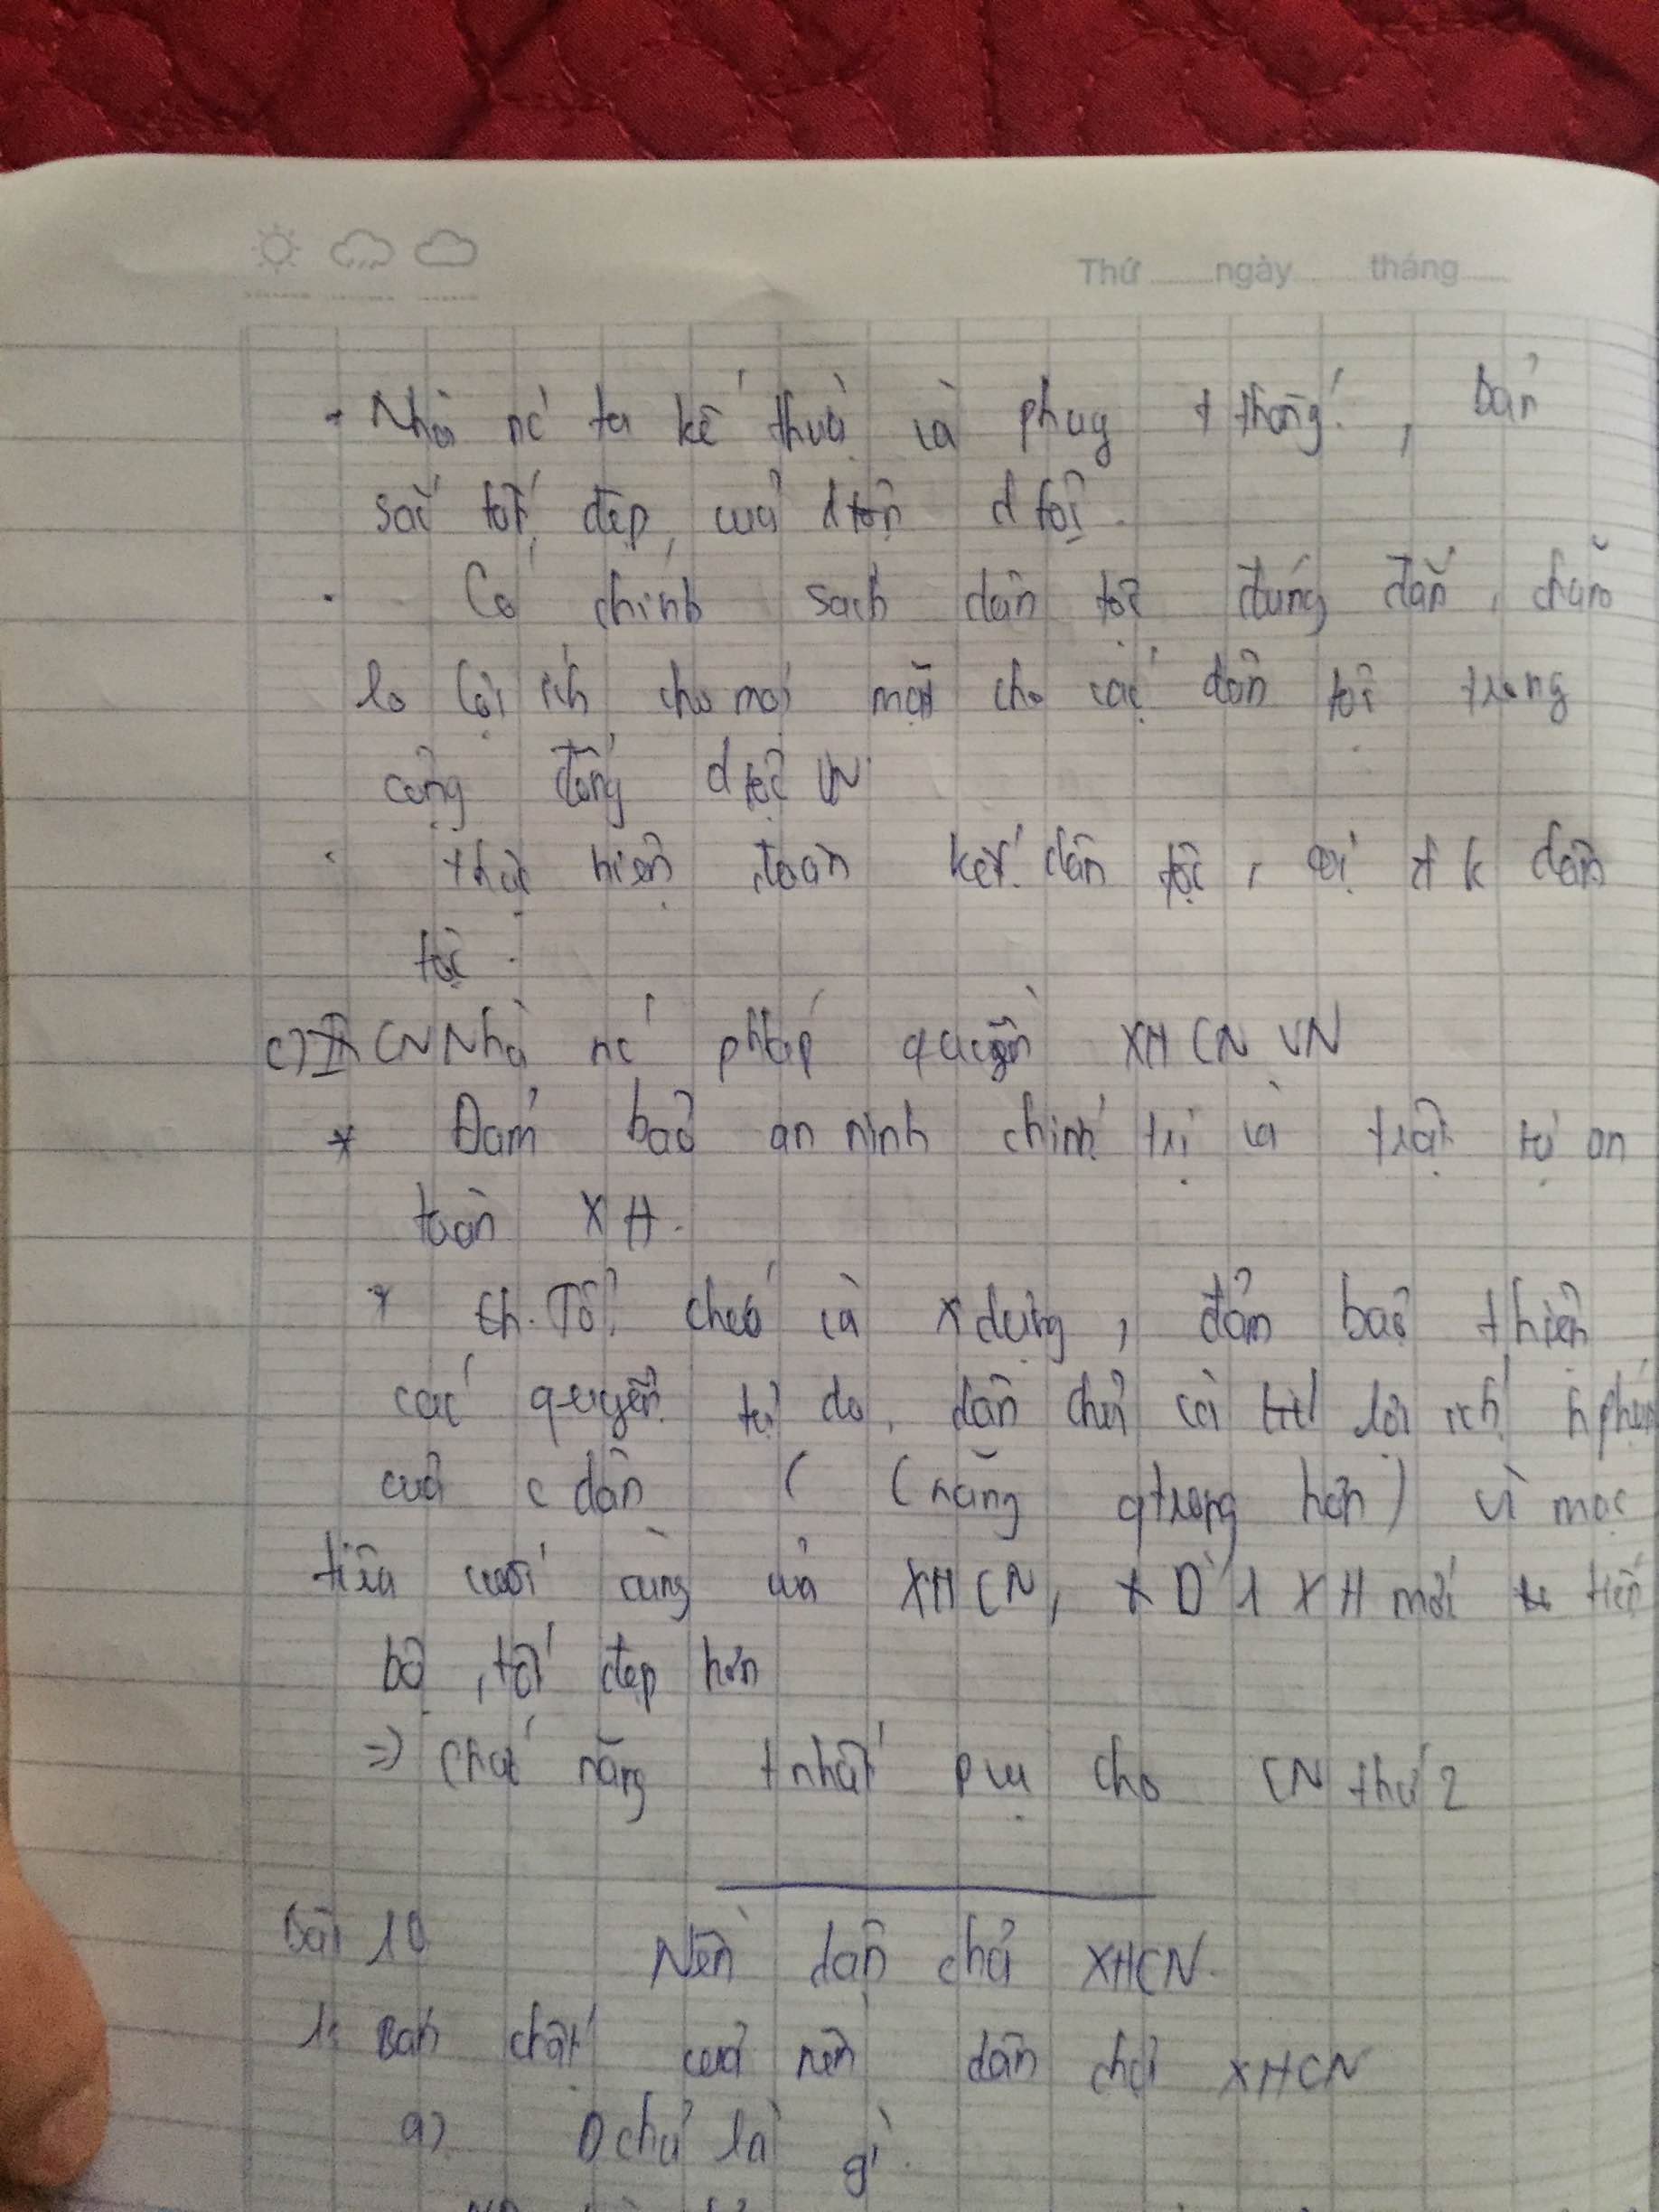 Thứ ngày tháng
+ Nhà nc ta kế thừa và phuy t thống, bản
sắc tốt đẹp của dtộc.
. Có chính sách dân tộc đúng đắn, chăm
lo lợi ích cho mọi mặt cho các dân tộc trong
cộng đồng dtộc VN
. thực hiện đoàn kết dân tộc, đk dân
tộc.
c) CN Nhà nc pháp quyền XHCN VN
* Đảm bảo an ninh chính trị và trật tự an
toàn XH.
* Tổ chức và xdựng, đảm bảo thiện
các quyền tự do, dân chủ và lợi ích hpháp
của c dân ( (năng qtrọng hơn) vì mục
tiêu cuối cùng của XHCN, XD 1 XH mới tiến
bộ, tốt đẹp hơn
=> Chức năng t nhất pvụ cho CN thứ 2
Bài 10 Nền dân chủ XHCN.
1: Bản chất của nền dân chủ XHCN
a) Dchủ là gì.